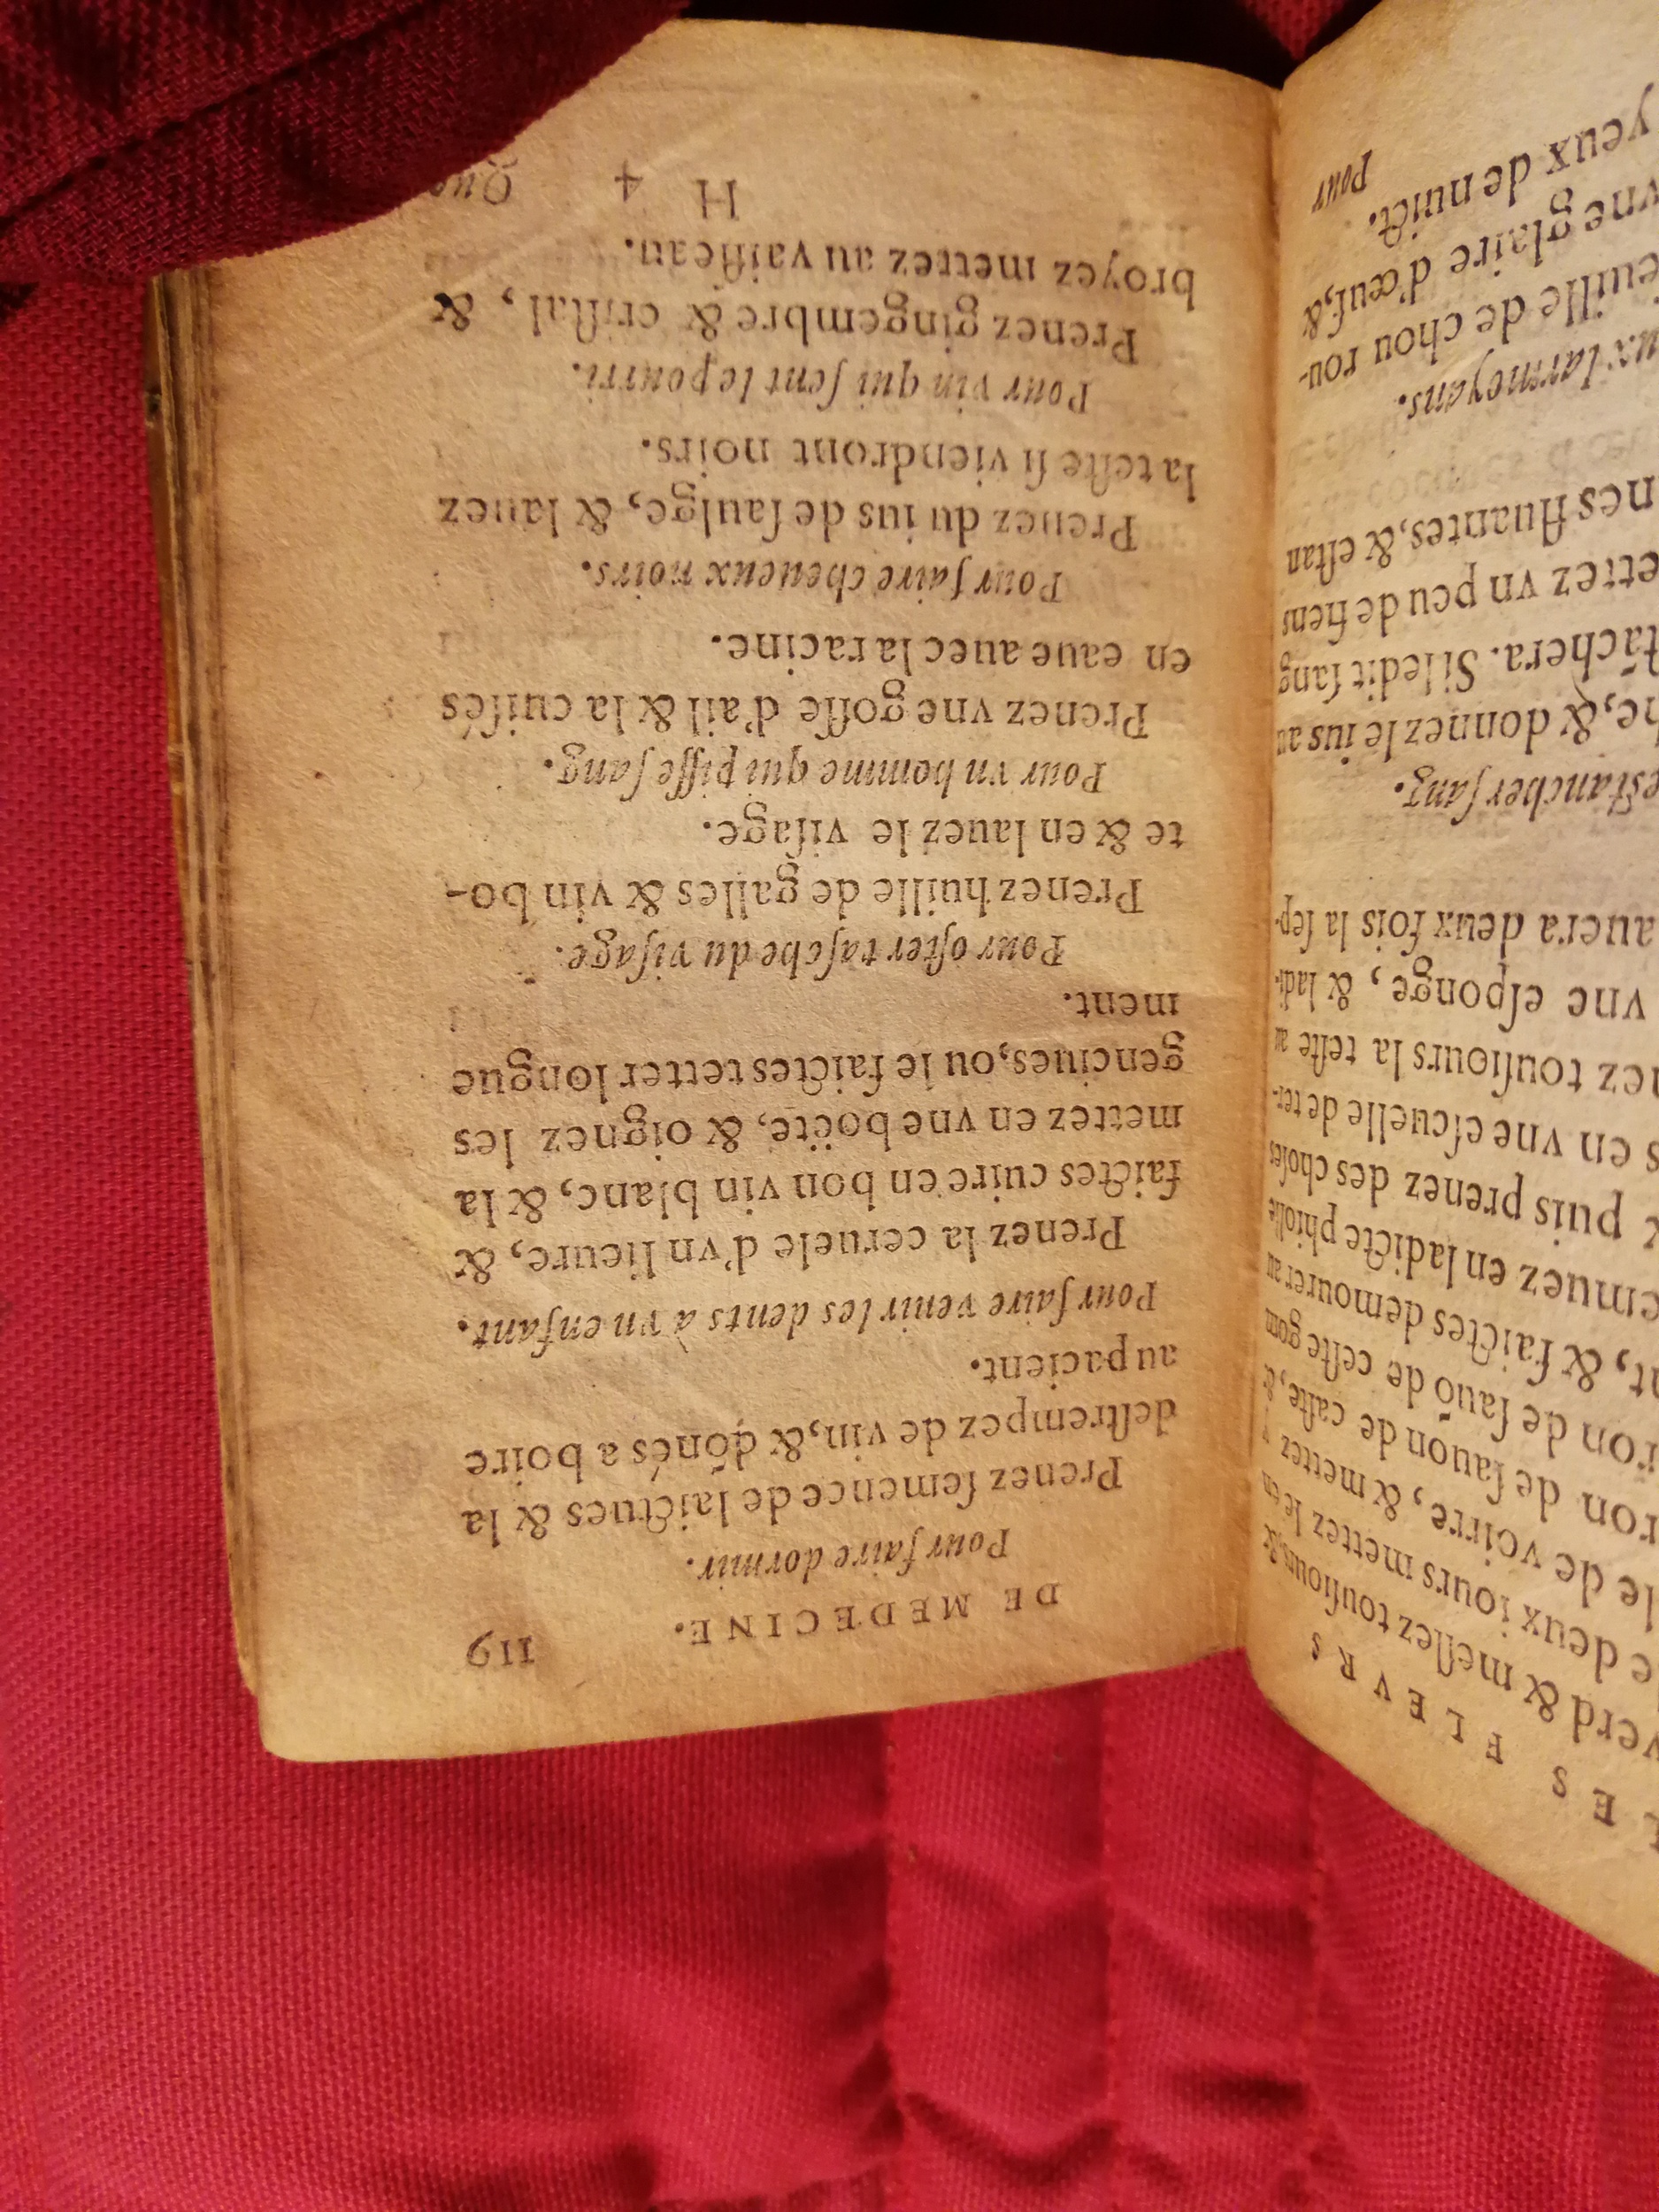 ES FLEVRS
verd & meſlez touſiours &
deux iours mettez le en
le de voirre, & mettez
ron de ſauon de caſte, &
ron de ſauõ de ceſte gom
& faictes demourer au
emuez en ladicte phiolle
& puis prenez des choſes
s en vne eſcuelle de ter-
nez touſiours la teſte au
vne eſponge, & ladi-
auera deux fois la ſep-
eſtancher ſang.
he, & donnez le ius au
tachera. Si ledit ſang
ettez vn peu de fiens
nes fluantes, & eſtan
ux larmoyans.
euille de chou rou-
vne glaire d'œuf, &
yeux de nuict.
Pour
DE MEDECINE. 119
Pour faire dormir.
Prenez ſemence de laictues & la
deſtrempez de vin, & dõnés a boire
au pacient.
Pour faire venir les dents à vn enfant.
Prenez la ceruele d'vn lieure, &
faictes cuire en bon vin blanc, & la
mettez en vne boëte, & oignez les
genciues, ou le faictes tetter longue
ment.
Pour oſter taſche du viſage.
Prenez huille de galles & vin bo-
te & en lauez le viſage.
Pour vn homme qui piſſe ſang.
Prenez vne goſſe d'ail & la cuiſés
en eaue auec la racine.
Pour faire cheueux noirs.
Prenez du ius de ſaulge, & lauez
la teſte ſi viendront noirs.
Pour vin qui ſent le pourri.
Prenez gingembre & criſtal, &
broyez mettez au vaiſſeau.
H 4 Que